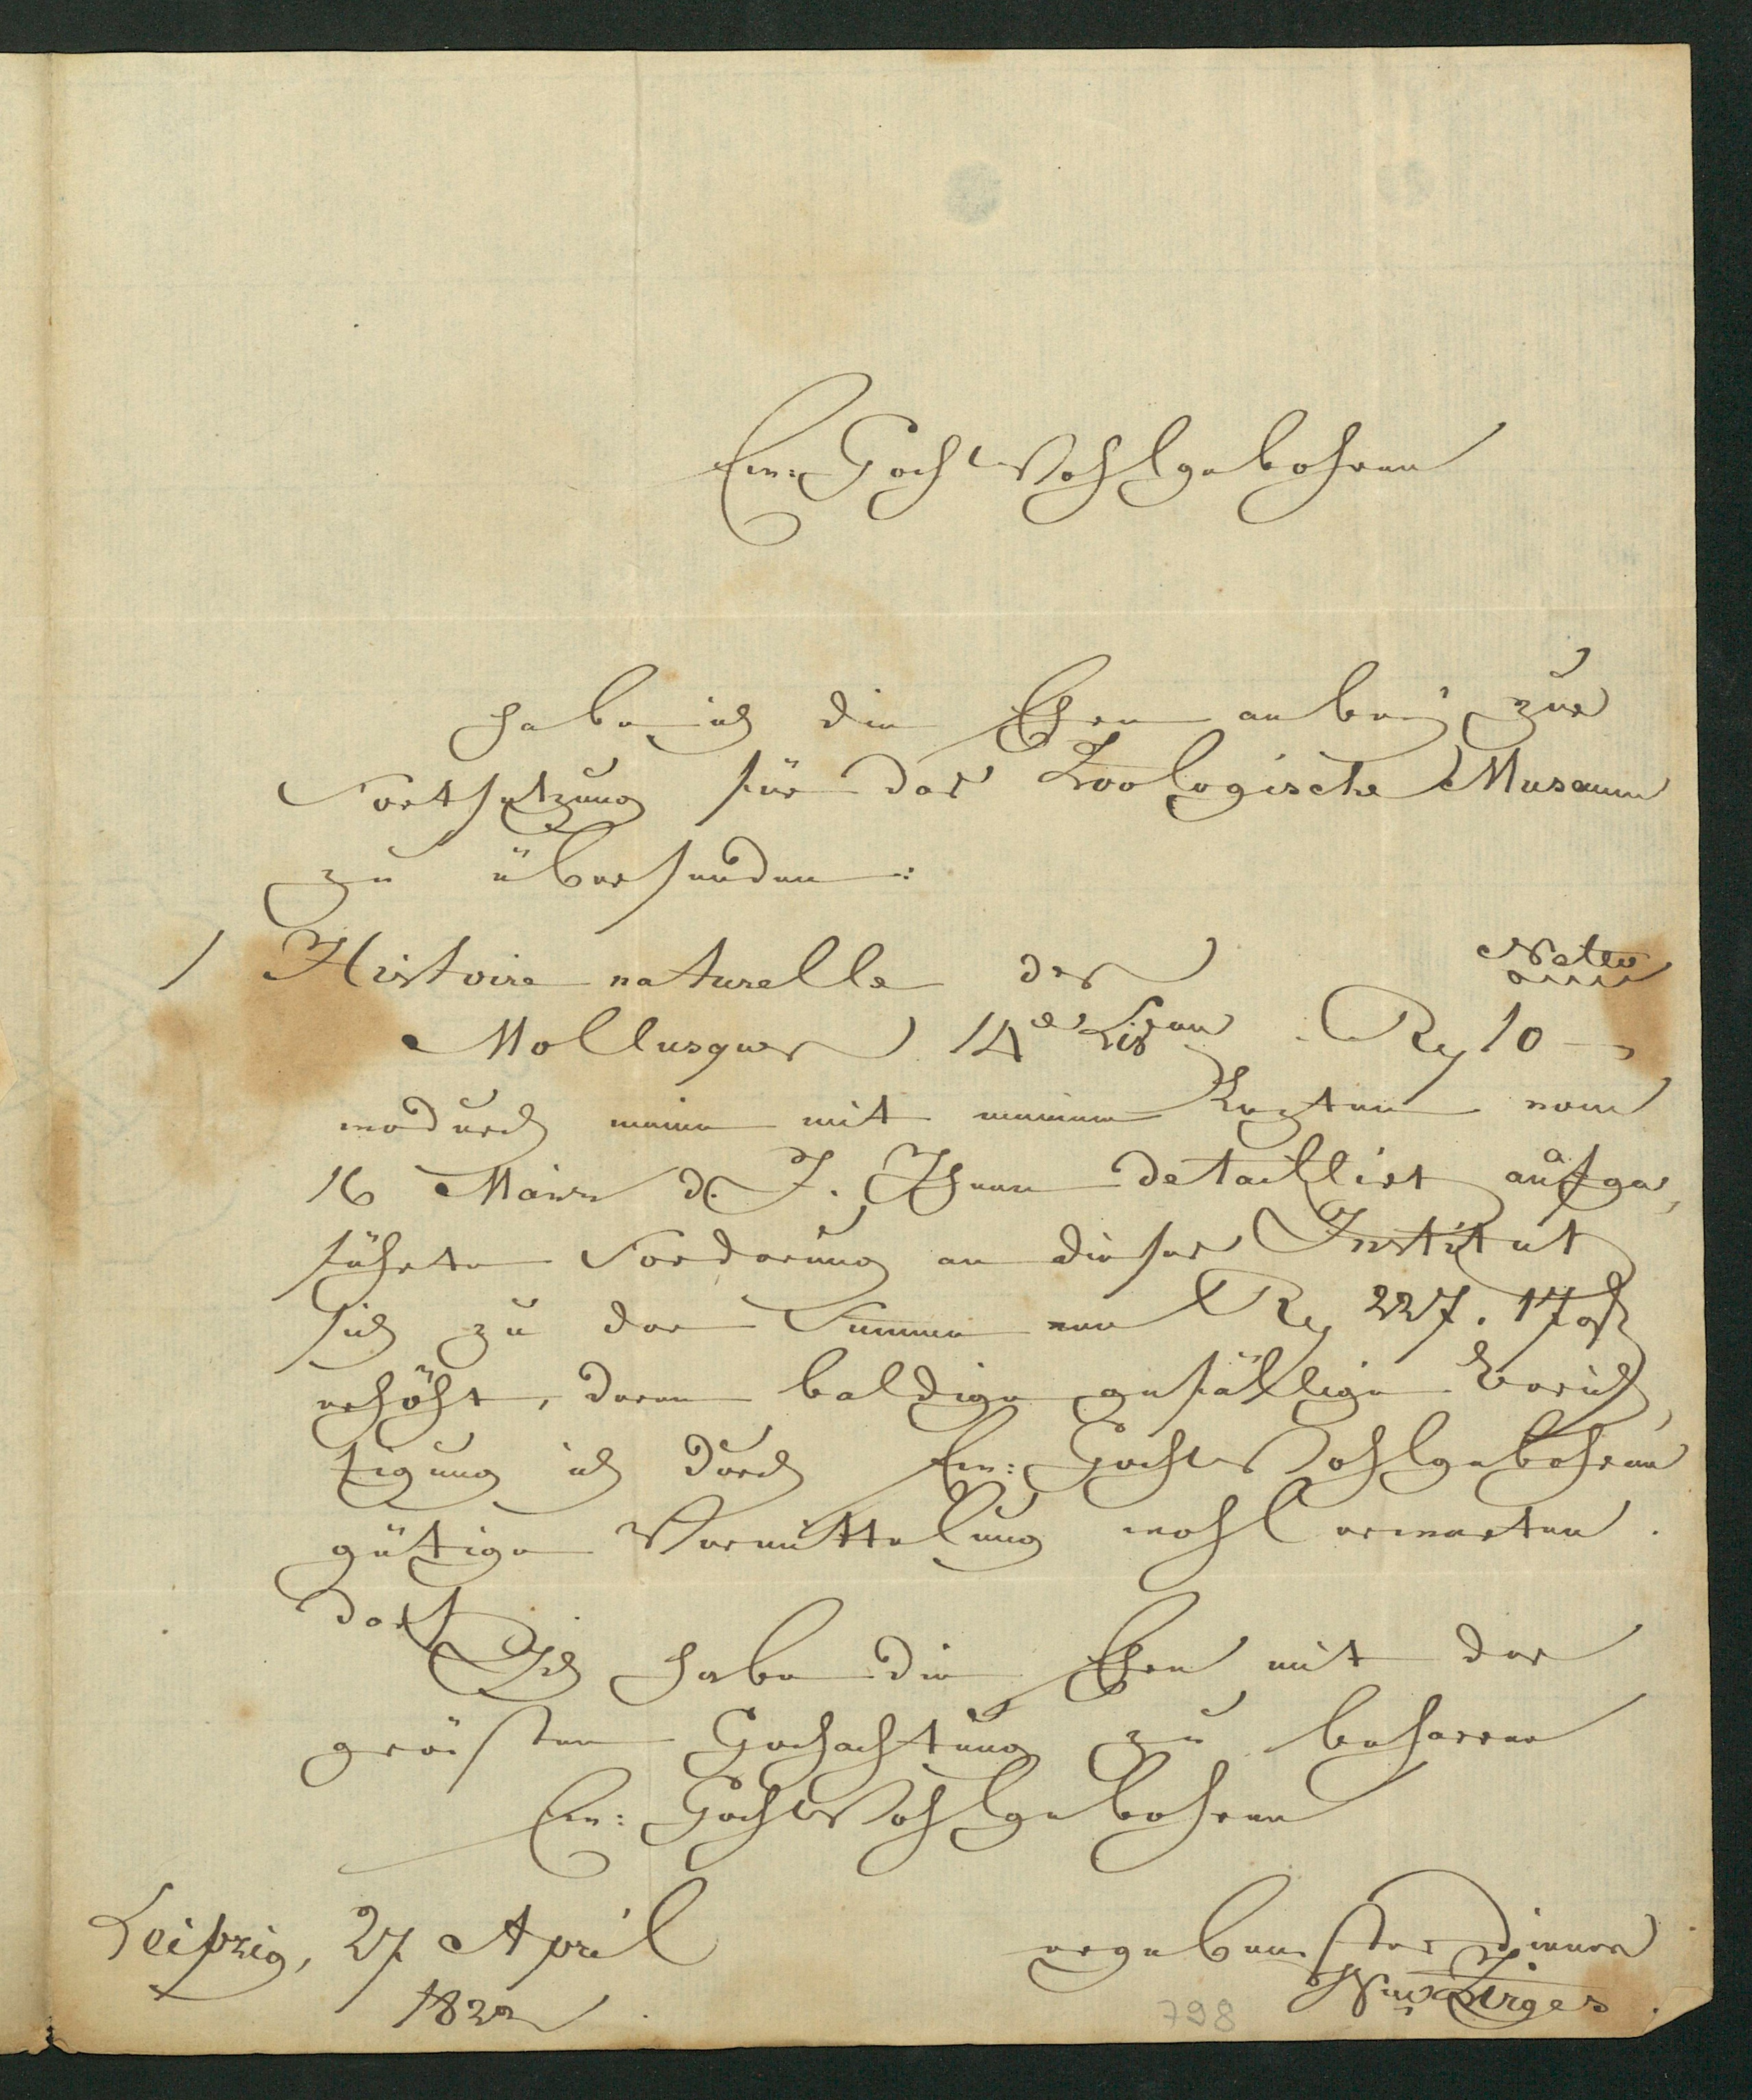 Ew: HochWohlgebohren
habe ich die Ehre anbey zur
Fortsetzung für das Zoologische Museum
zu übersenden:
Netto
1 Histoire naturelle des
Mollusques 14e Livr. Rg 10 –
wodurch meine mit meinem Lezten vom
16 März d. J. Ihnen detaillirt aufge,
führte Forderung an dieses Institut
sich zu der Summe von Rg 227. 17 gr
erhöht, deren baldige gefällige Berich,
tigung ich durch Ew: HochWohlgebohren
gütige Vermittelung wohl erwarten
darf.
Ich habe die Ehre mit der
grösten Hochachtung zu beharren
Ew: HochWohlgebohren
Leipzig, 27 April
1822
ergebenster Diener
Zirges
798